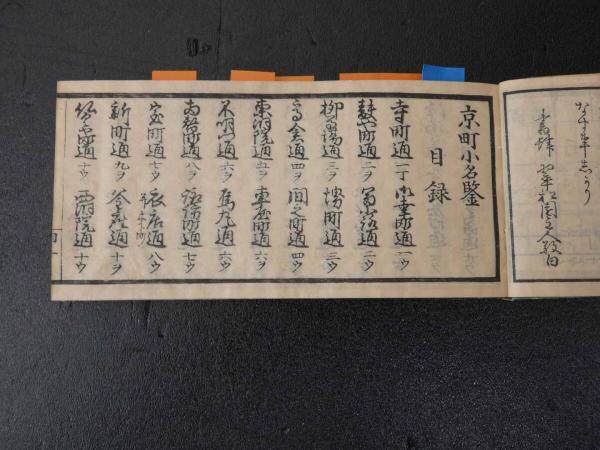 主人敬白
京町小名鑑
目録
寺町通 一丁 御幸町通 一ウ
麩屋町通 二ヲ 富小路通 二ウ
柳馬場通 三ヲ 堺町通 三ウ
高倉通 四ヲ 間之町通 四ウ
東洞院通 五ヲ 車屋町通 六ヲ
不明門通 六ヲ 烏丸通 六ウ
両替町通 八ヲ 諏訪町通 七ウ
室町通 七ウ 衣店通 八ウ
新町通 九ヲ 釜座通 十ヲ
町通 十ウ 西洞院通 十ウ